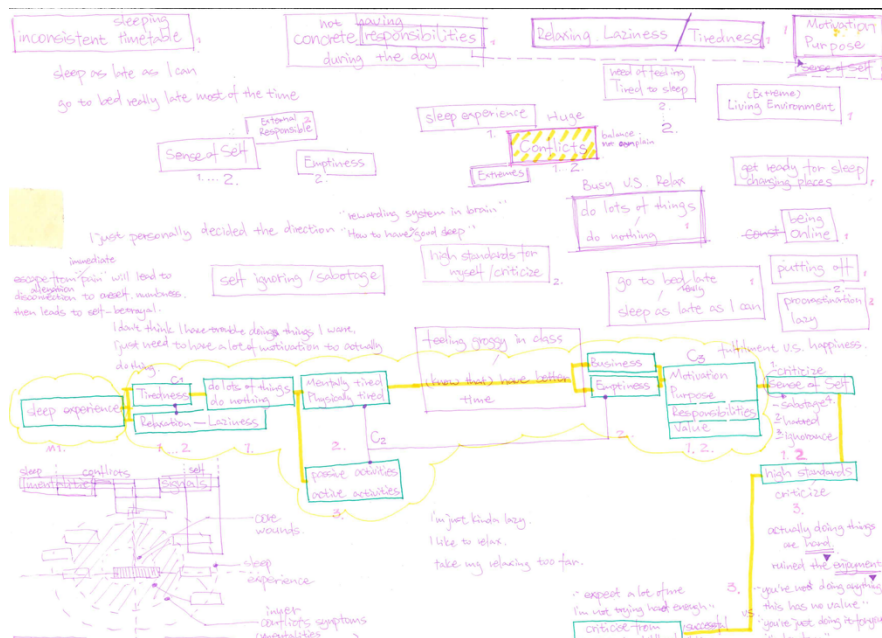 sleeping
inconsistent timetable
1
not having
concrete responsibilities
during the day
1
Relaxing. Laziness / Tiredness
1
Motivation
Purpose
1
sense of self
sleep as late as I can
go to bed really late most of the time
need of feeling
Tired to sleep
2
2.
(Extreme)
Living Environment
1
sleep experience
1.
Huge
Conflicts
1. 2.
balance
Extremes
External &
Responsible
Sense of Self
1. ... 2.
Emptiness
2.
get ready for sleep
changing places
1
Busy V.S. Relax
do lots of things
/
do nothing
1
"rewarding system in brain"
I just personally decided the direction
"How to have good sleep"
const
being
Online
1
immediate
escape from "pain" will lead to
alienation
disconnection to oneself, numbness,
then leads to self-betrayal.
self ignoring / sabotage
high standards for
myself / criticize
2.
go to bed late
really
sleep as late as I can
putting off
2.
procrastination
lazy
I don't think I have trouble doing things I want.
I just need to have a lot of motivation to actually
do thing.
feeling groggy in class
(know that) have better
time
fulfilment V.S. happiness.
C1
C3
sleep experience
Tiredness
Relaxation — Laziness
do lots of things
do nothing
Mentally tired
Physically tired
Business
Emptiness
Motivation
Purpose
Responsibilities
Value
1. criticize
sense of Self
- sabotage
2 hatred
3 ignorance
1. 2
1 ... 2
1.
2.
C2
2.
1. 2.
passive activities
active activities
3.
high standards
criticize
3.
sleep conflicts self
mentalities signals
core
wounds.
sleep
experience
inner
conflicts symptoms
mentalities
I'm just kinda lazy.
I like to relax.
take my relaxing too far.
actually doing things
are hard.
ruined the enjoyment
3.
"expect a lot of me
I'm not trying hard enough"
criticize from
successful
VS
"you're not doing anything
this has no value"
"you're just doing it for you